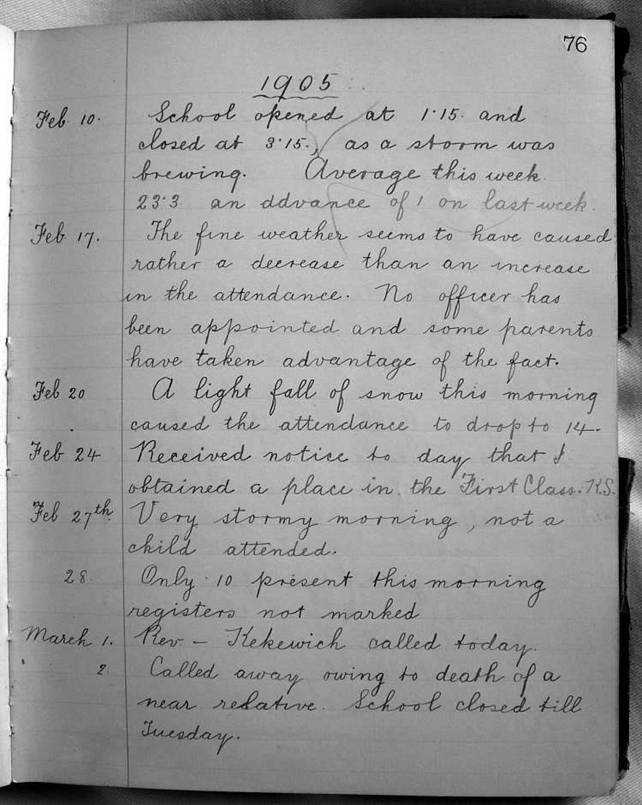 76
1905
Feb 10. School opened at 1·15 and
closed at 3·15, as a storm was
brewing. Average this week
23·3 an ddvance of 1 on last week.
Feb 17. The fine weather seems to have caused
rather a decrease than an increase
in the attendance. No officer has
been appointed and some parents
have taken advantage of the fact.
Feb 20 A light fall of snow this morning
caused the attendance to drop to 14.
Feb 24 Received notice to day that I
obtained a place in the First Class. K.S.
Feb 27th Very stormy morning, not a
child attended.
28. Only 10 present this morning
registers not marked
March 1. Rev. — Kekewich called today.
2. Called away owing to death of a
near relative. School closed till
Tuesday.